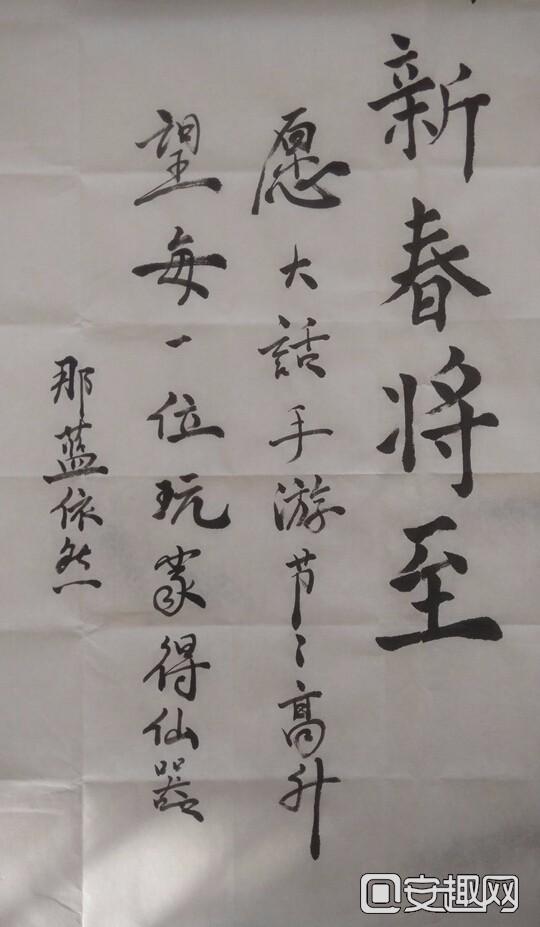 新春将至
愿大話手游节〻高升
望每一位玩家得仙器
那蓝依然
安趣网